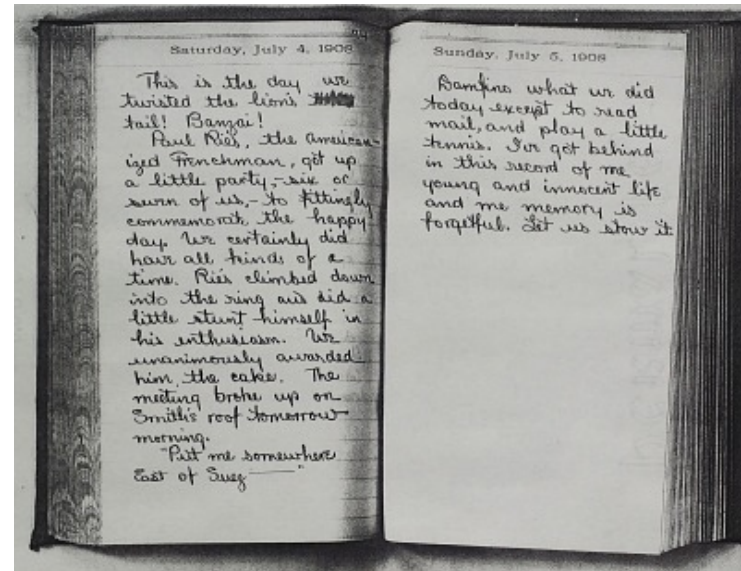 Saturday, July 4, 1908
This is the day we
twisted the lion's
tail! Banzai!
Paul Ries, the american-
ized Frenchman, got up
a little party,- six or
seven of us,- to fittingly
commemorate the happy
day. We certainly did
have all kinds of a
time. Ries climbed down
into the ring and did a
little stunt himself in
his enthusiasm. We
unanimously awarded
him the cake. The
meeting broke up on
Smith's roof tomorrow
morning.
"Put me somewhere
East of Suez ——"
Sunday, July 5, 1908
what we did
today except to read
mail, and play a little
tennis. I've got behind
in this record of me
young and innocent life
and me memory is
forgetful. Let us stow it